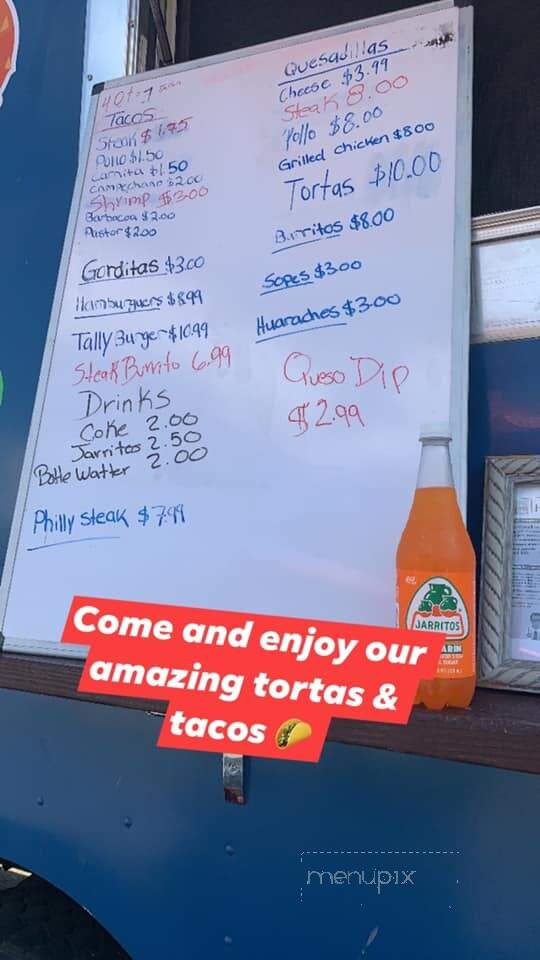 Tacos
Steak $1.75
Pollo $1.50
Carnita $1.50
Campechano $2.00
Shrimp $3.00
Barbacoa $2.00
Pastor $2.00
Gorditas $3.00
Hamburguers $8.99
Tally Burger $10.99
Steak Burrito 6.99
Drinks
Coke 2.00
Jarritos 2.50
Botle Watter 2.00
Philly Steak $7.99
Quesadillas
Cheese $3.99
Steak 8.00
Pollo $8.00
Grilled chicken $8.00
Tortas $10.00
Birritos $8.00
Sopes $3.00
Huaraches $3.00
Queso Dip
$2.99
JARRITOS
Come and enjoy our
amazing tortas &
tacos 🌮
menupix